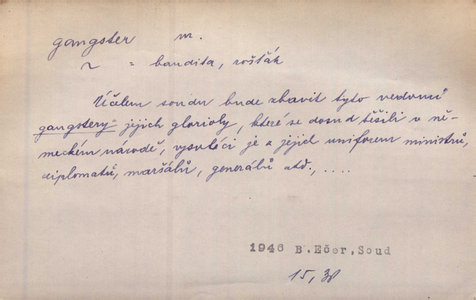 gangster m.
~ = bandita, rošťák
Účelem soudu bude zbavit tyto
gangstery jejich glorioly, které se dosud těšili v ně-
meckém národě, vysvléci je z jejich uniforem ministrů,
diplomatů, maršálů, generálů atd., ....
1946 B. Ečer, Soud
15, 38